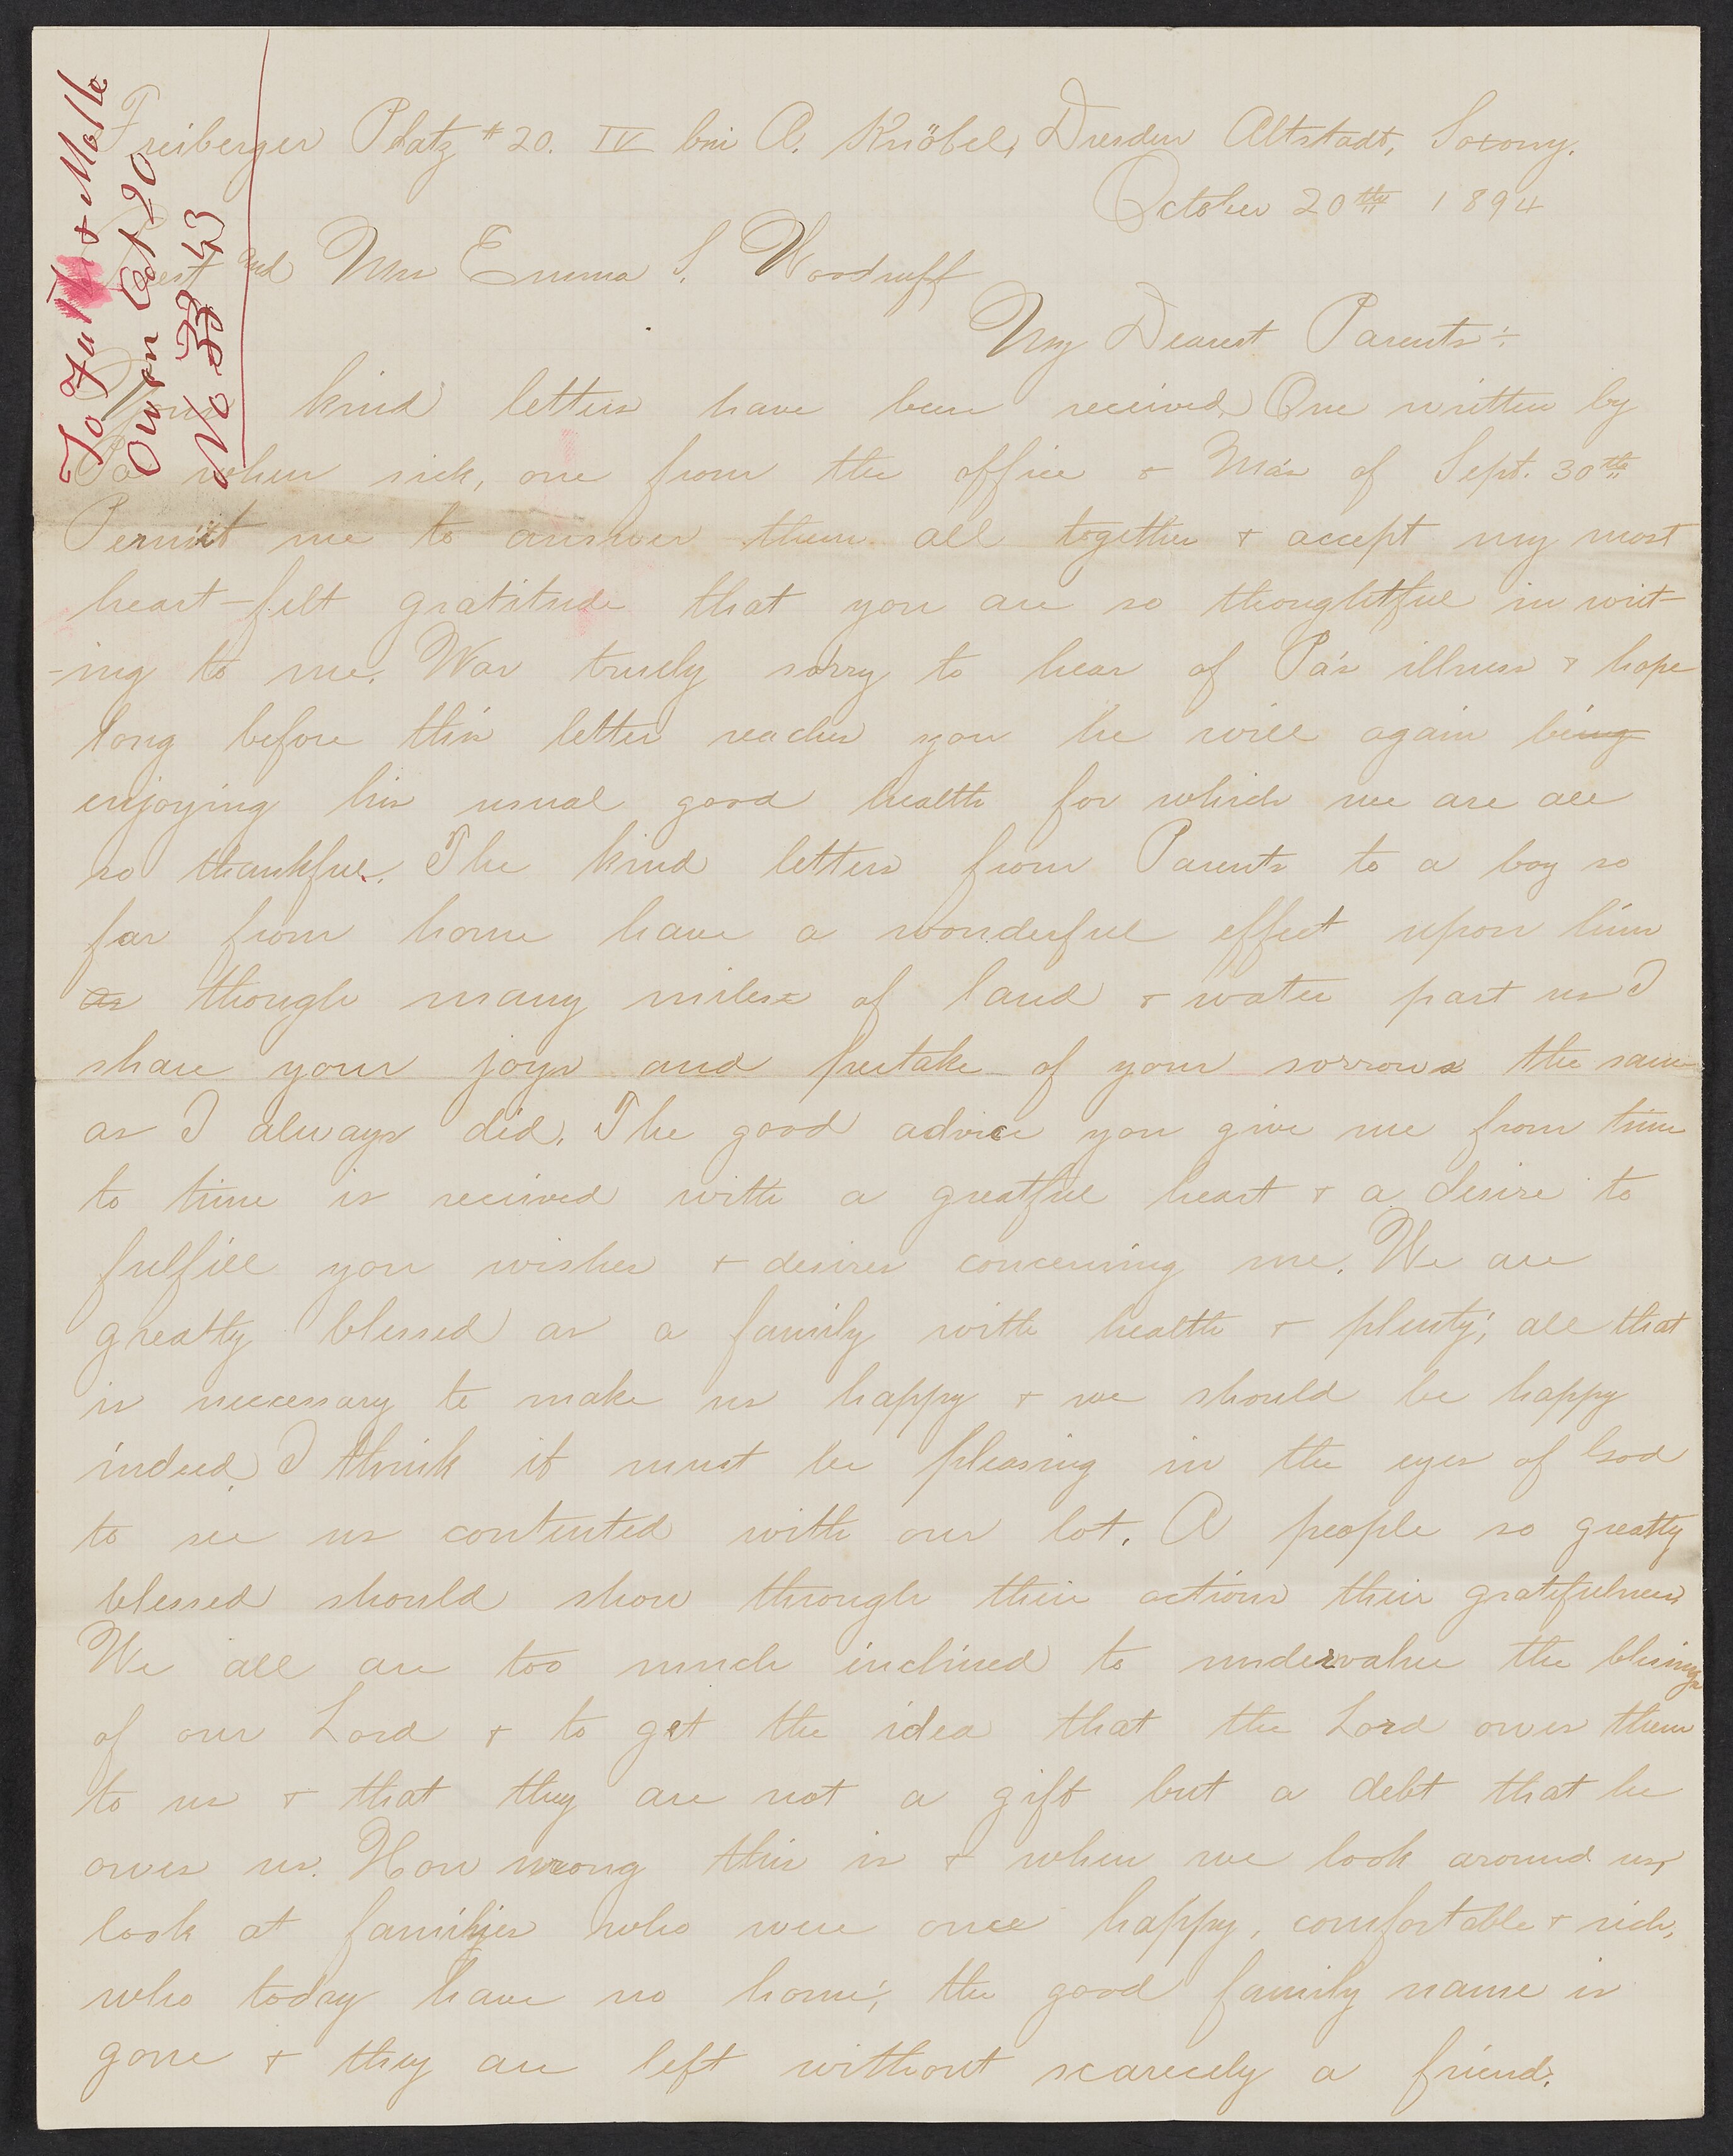 To Father & Mother
Owen Oct 20
No 33 43
Freiberger Platz #20. IV bei A. Knöbel, Dresden Altstadt, Saxony.
October 20th 1894
Prest and Mrs Emma S. Woodruff
My Dearest Parents:
Your kind letters have been received, One written by
Pa when sick, one from the office & Ma's of Sept. 30th
Permit me to answer them all together & accept my most
heart-felt gratitude that you are so thoughtful in writ-
-ing to me. Was truely sorry to hear of Pa's illness & hope
long before this letter reaches you he will again being
enjoying his usual good health for which we are all
so thankful. The kind letters from Parents to a boy so
far from home have a wonderful effect upon him
as though many miles of land & water part us I
share your joys and pertake of your sorrows the same
as I always did. The good advice you give me from time
to time is received with a greatful heart & a desire to
fulfill you wishes & desires concerning me. We are
greatly blessed as a family with health & plenty; all that
is neccessary to make us happy & we should be happy
indeed. I think it must be pleasing in the eyes of God
to see us contented with our lot. A people so greatly
blessed should show through their actions their gratefulness
We all are too much inclined to undervalue the blessings
of our Lord & to get the idea that the Lord owes them
to us & that they are not a gift but a debt that he
owes us. How wrong this is & when we look around us,
look at families who were once happy, comfortable & rich,
who today have no home; the good family name is
gone & they are left without scarecely a friend.